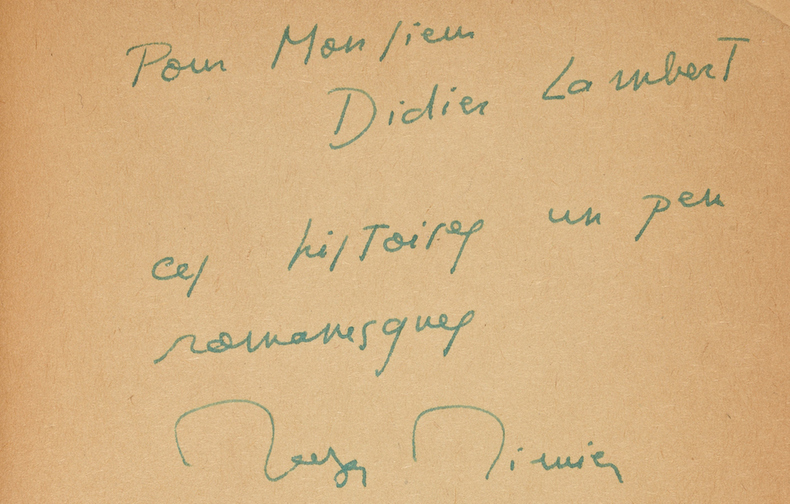 Pour Monsieur
Didier Lambert
ces histoires un peu
romanesques
Roger Nimier